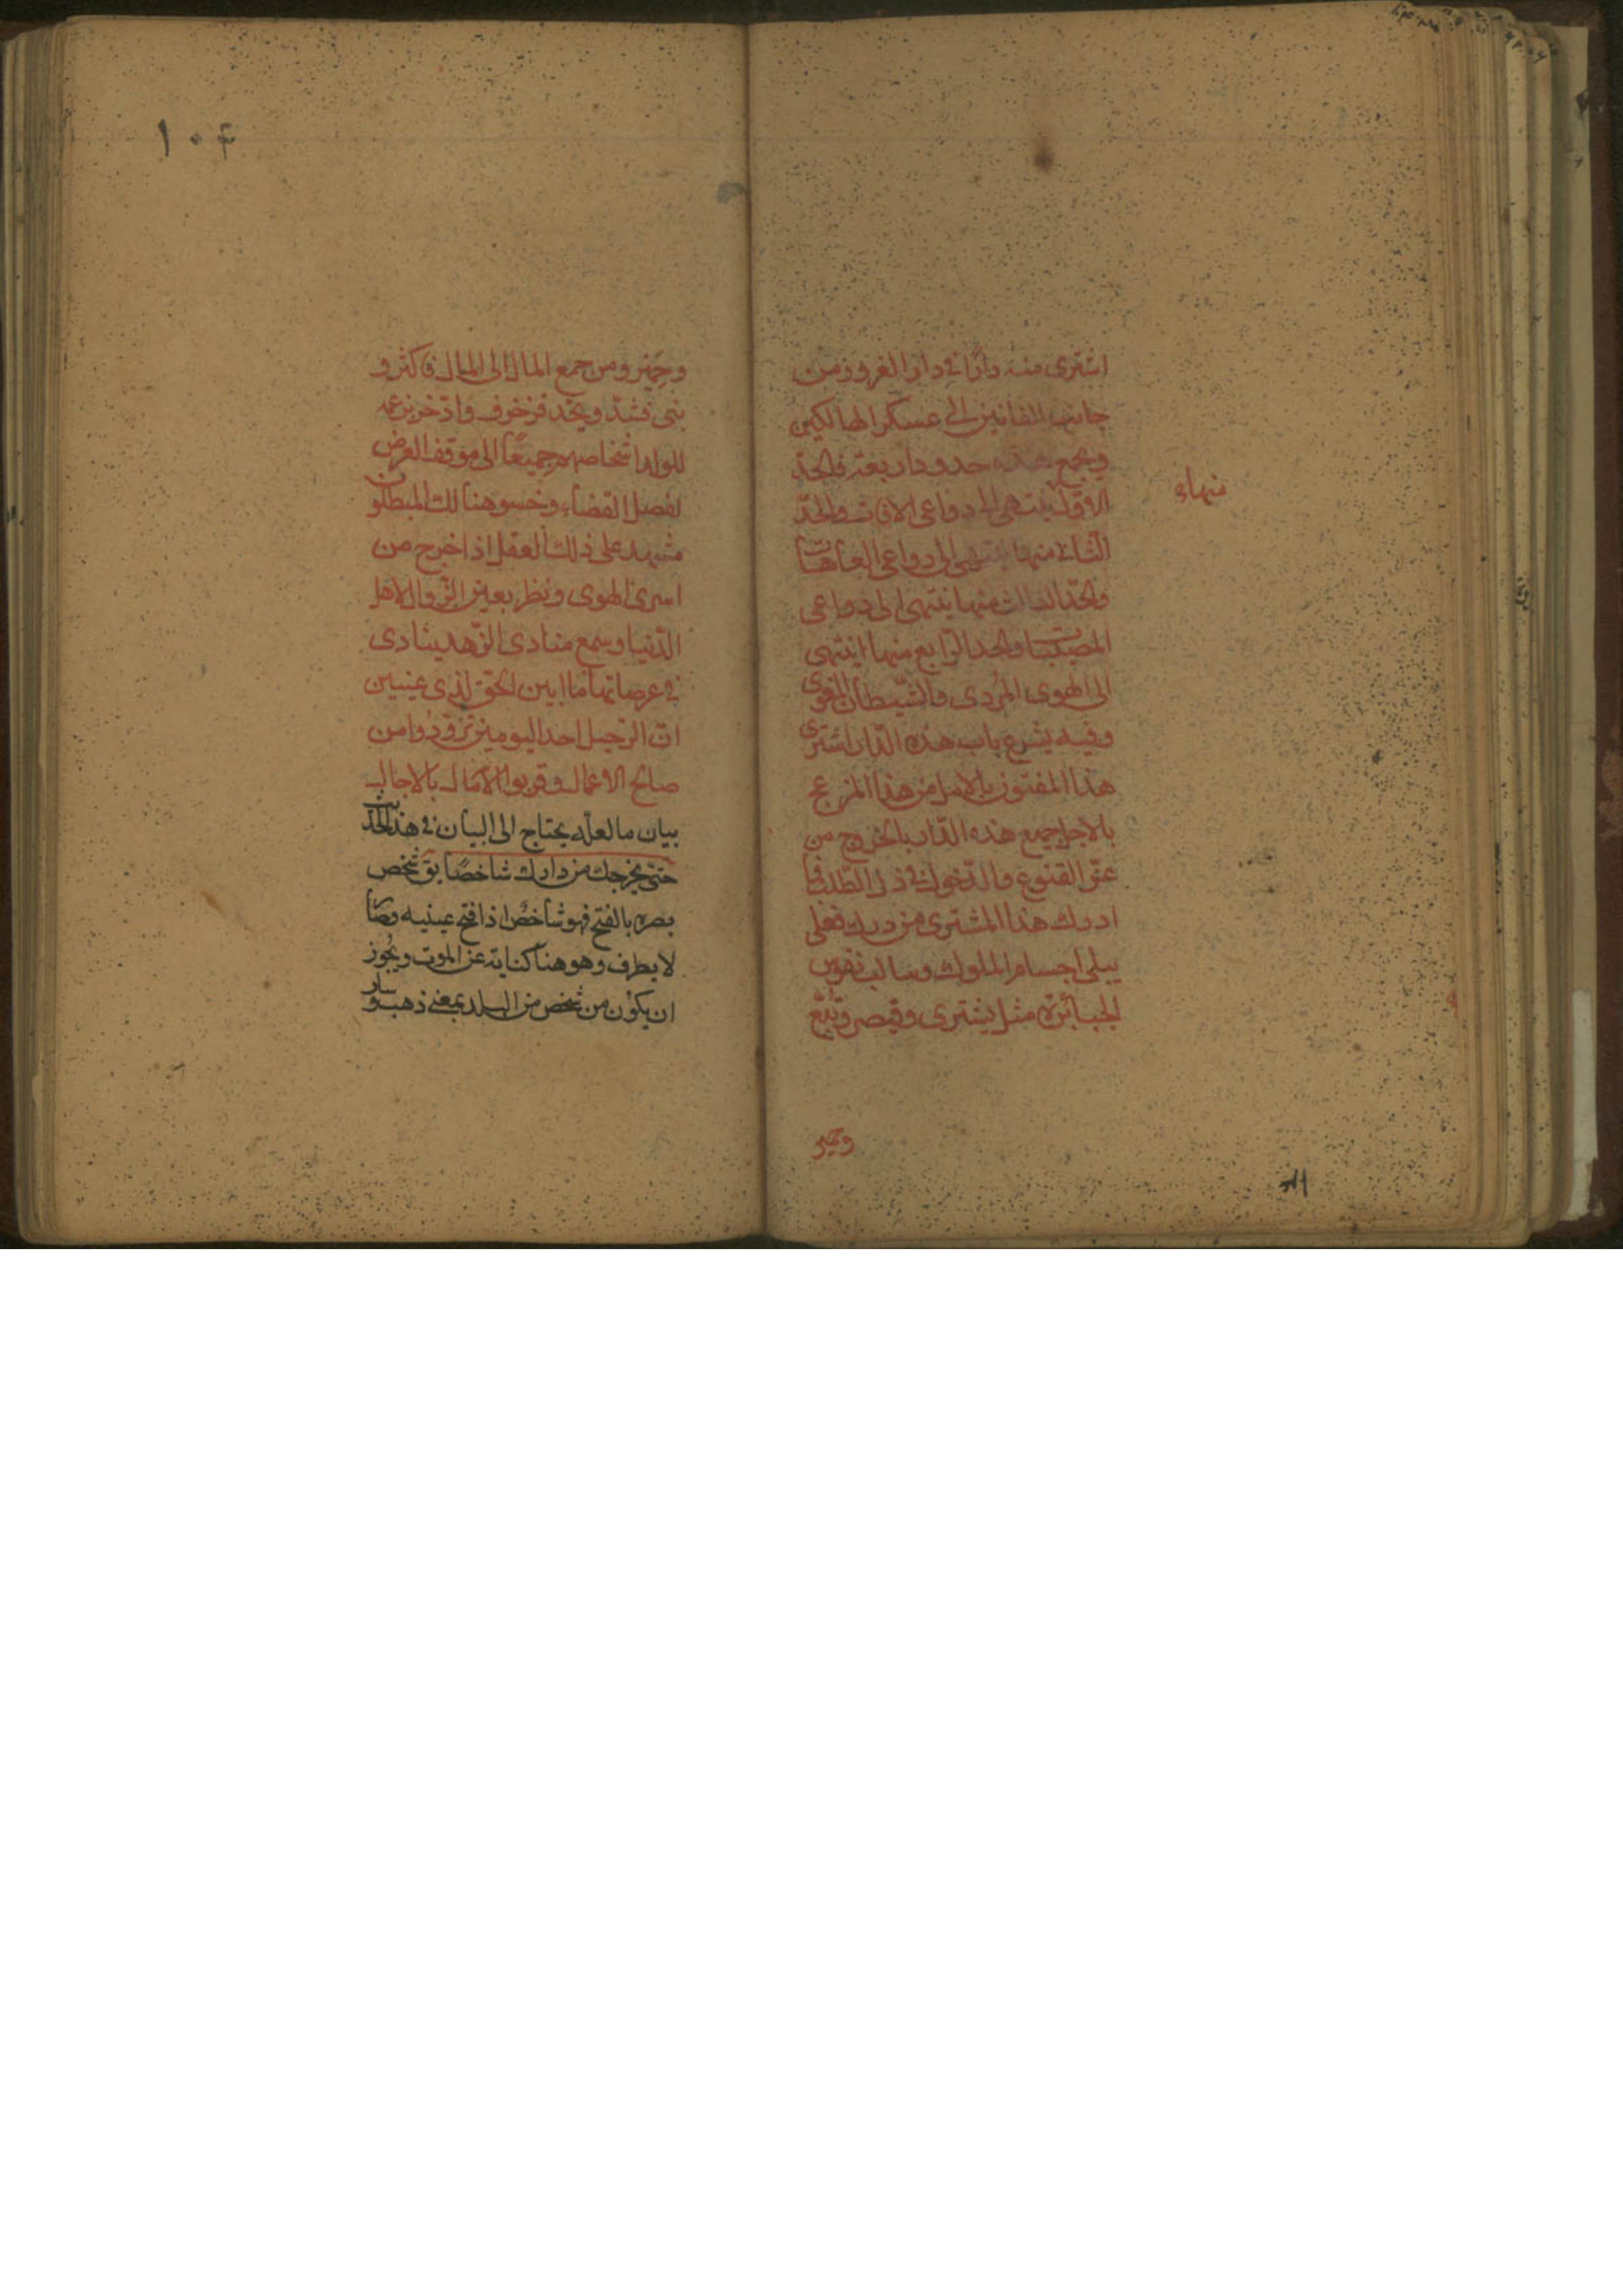 اشترى منه دارًا في دار الغرور من
جانب الفانين الى عسكر الهالكين
ويجمع هذه حدود اربعة فالحدّ
الاوّل ينتهى الى دواعى الافات والحدّ
الثانى منها ينتهى الى دواعى العاهات
والحدّ الثالث منها ينتهى الى دواعى
المصيبات والحد الرّابع منها ينتهى
الى الهوى المُردى والشّيطان المغوى
وفيه يشرع باب هذه الدّار اشترى
هذا المفتون بالامل من هذا المزعج
بالاجل جميع هذه الدّار بالخروج من
عزّ القنوع والدّخول في ذلّ الطّلب فما
ادرك هذا المشترى من درك فعلى
مبلى اجسام الملوك وسالب نفوس
الجبابرة مثل كسرى وقيصر وتبّع
منها
وحمير
وحِمْير ومن جمع المال الى المال فاكثر و
بنى فشيّد ونجّد فزخرف وادّخر بزعمه
للولد اشخاصهم جميعًا الى موقف العرض
لفصل القضاء وخسر هنالك المبطلون
شهد على ذلك العقل اذا خرج من
اسرى الهوى ونظر بعين الزّوال لاهل
الدّنيا وسمع منادى الزّهد ينادى
في عرصاتها ما ابين الحقّ لذى عينين
انّ الرّحيل احد اليومين تزوّدُوا من
صالح الاعمال وقربوا الآمال بالاجال
بيان ما لعلّه يحتاج الى البيان في هذا الحديث
حتّى يخرجك من دارك شاخصًا يقٓ شخص
بصره بالفتح فهو شاخصٌ اذا فتح عينيه وصار
لا يطرف وهو هنا كناية عن الموت ويجُوز
ان يكوُن من شخص من البلد بمعنى ذهب وسار
۱۰۴